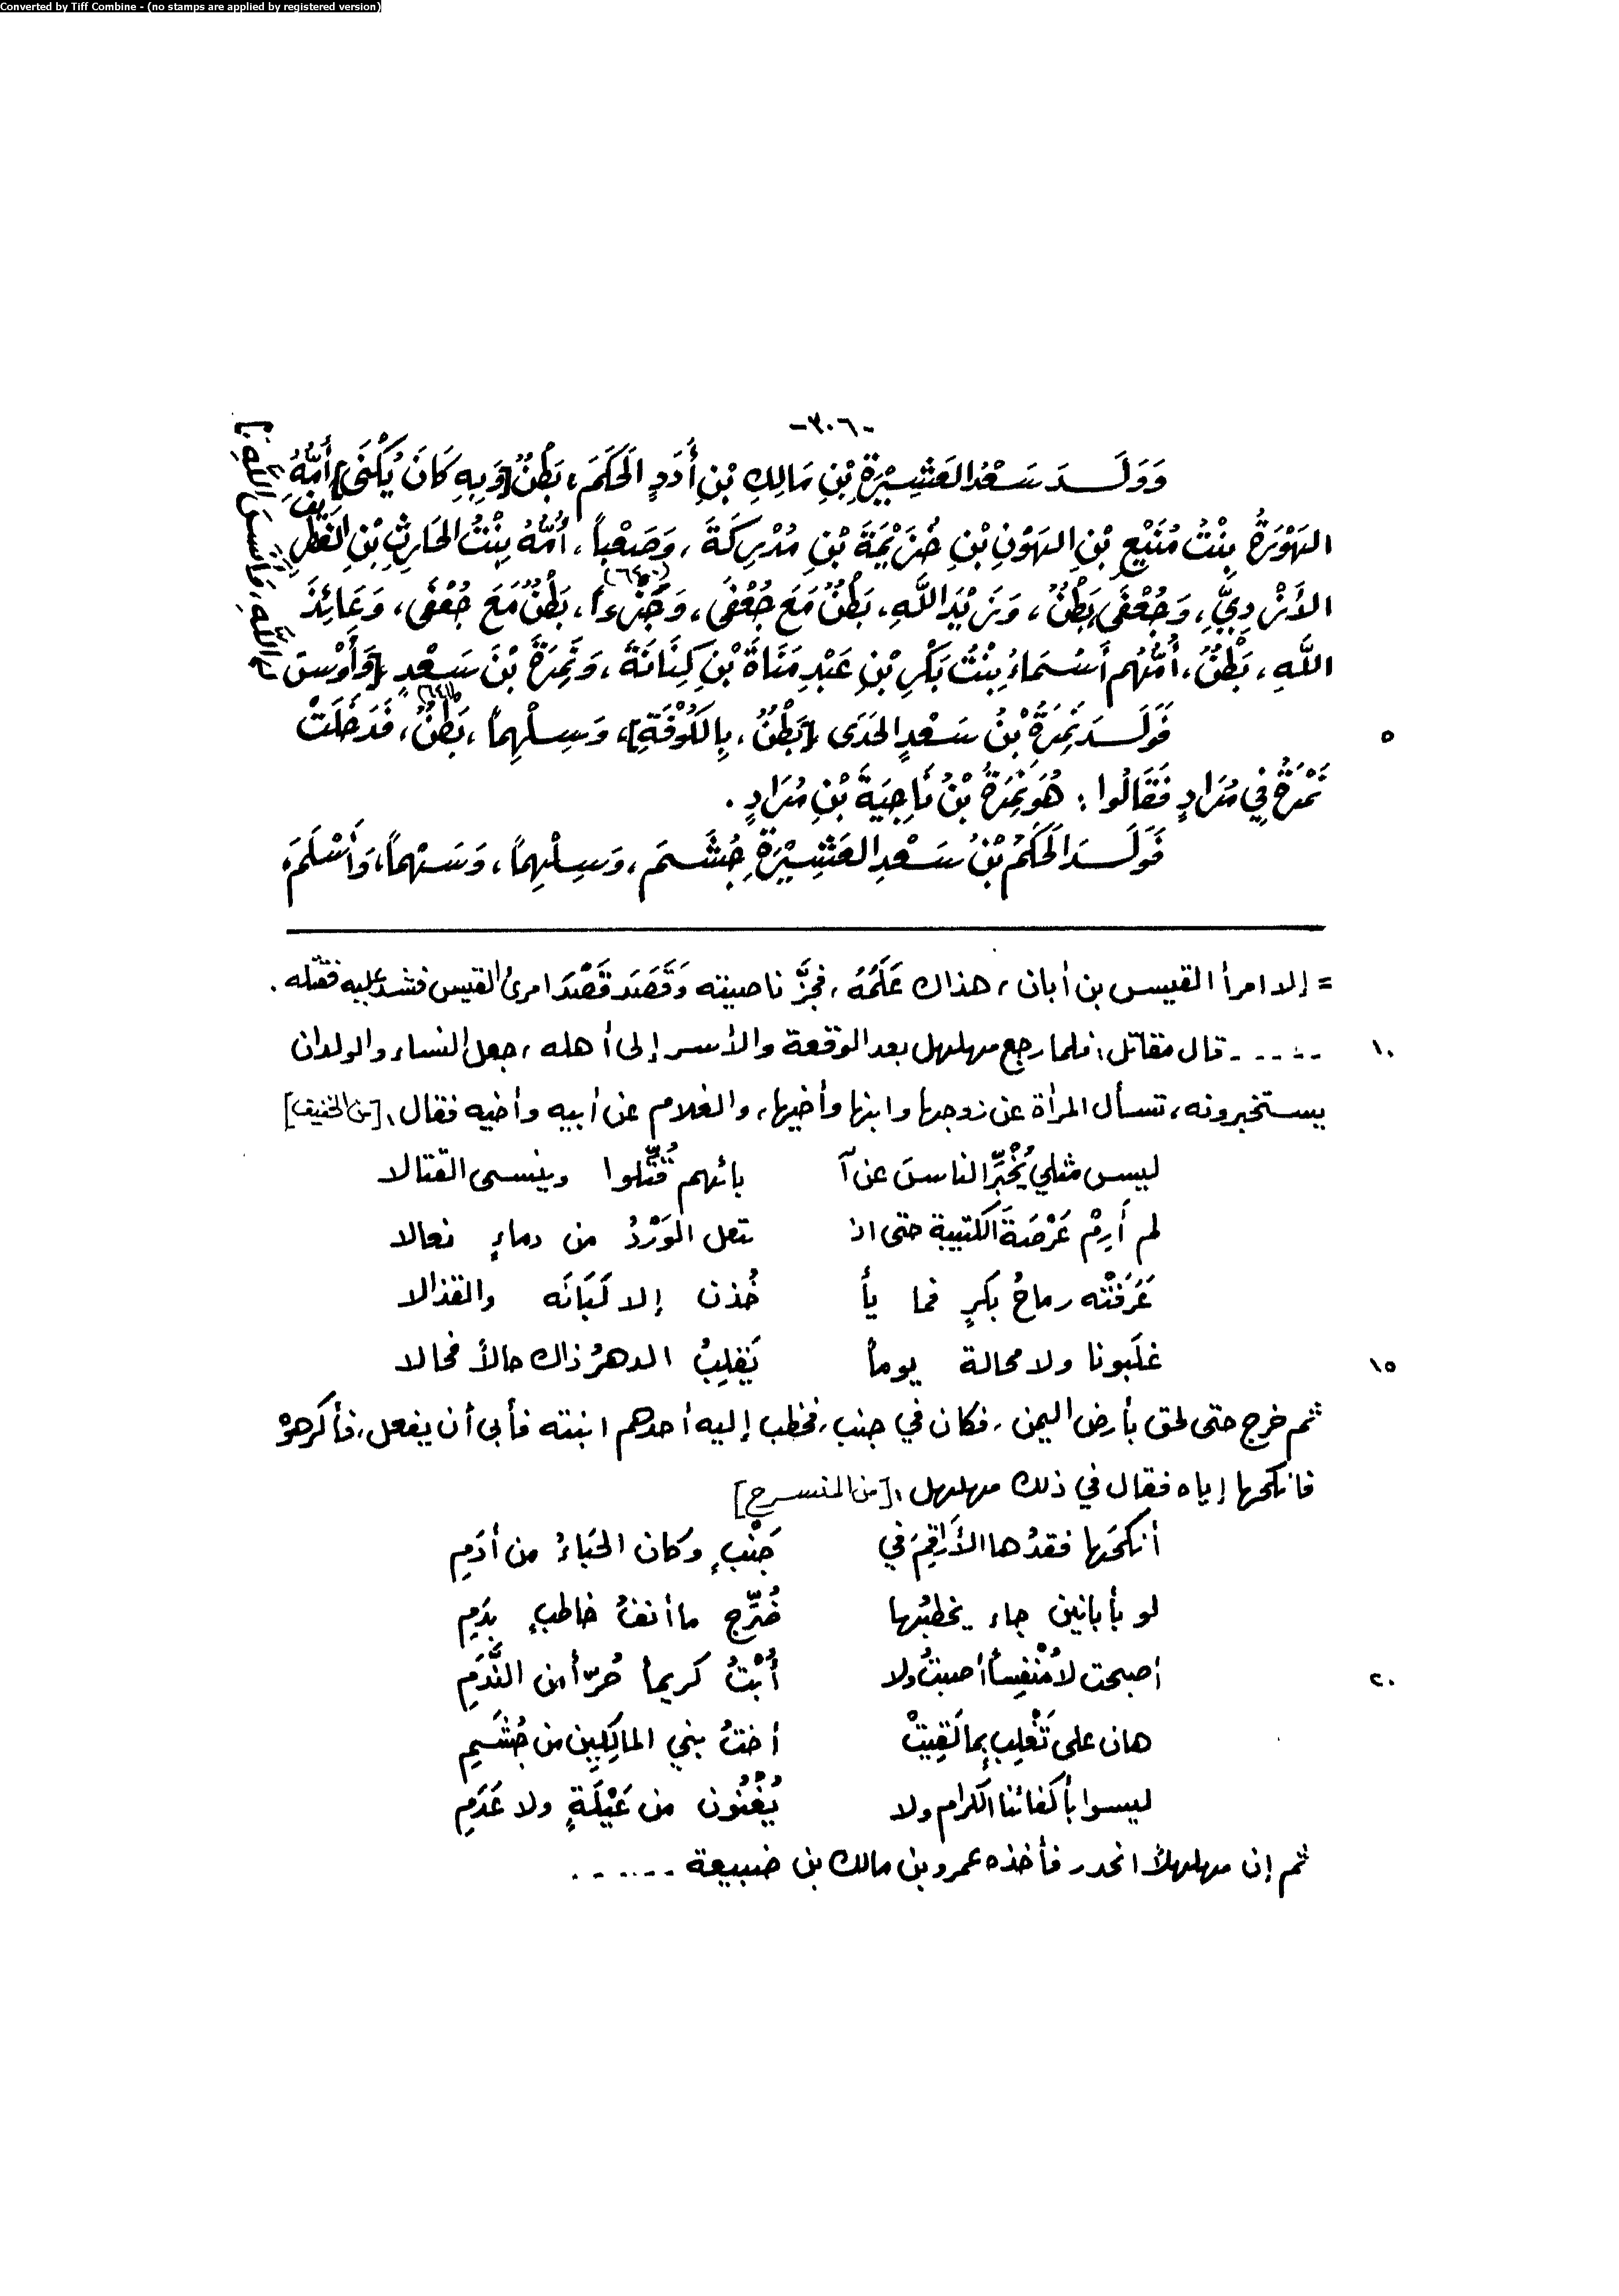 Converted by Tiff Combine - (no stamps are applied by registered version)
-٣٠٦-
وَوَلَـدَ سَعْدُ العَشِيْرَةِ بْنِ مَالِكِ بْنِ أُدَدٍ الحَكَمَ، بَطْنٌ [وَبِهِ كَانَ يُكْنَى] أُمُّهُ
الهَوْرَةُ بِنْتُ مُنَيْعِ بْنِ الهَوْنِ بْنِ خُزَيْمَةَ بْنِ مُدْرِكَةَ، وَصَعْباً، أُمُّهُ بِنْتُ الحَارِثِ بْنِ الغِطْرِيفِ
الأَزْدِيِّ، وَجُعْفَى بَطْنٌ، وَزَيْدَ اللَّهِ، بَطْنٌ مَعَ جُعْفَى، وَجَزْءاً، بَطْنٌ مَعَ جُعْفَى، وَعَائِذَ
(٦٤٠)
اللَّهِ، بَطْنٌ، أُمُّهُم أَسْمَاءُ بِنْتُ بَكْرِ بْنِ عَبْدِ مَنَاةَ بْنِ كِنَانَةَ، وَنَمِرَةَ بْنَ سَعْدٍ [وَأَوْسَ اللَّهِ، وَأَنَسَ اللَّهِ.]
٥ فَوَلَـدَ نَمِرَةُ بْنُ سَعْدٍ الحَدَى [بَطْنٌ، بِالكُوْفَةِ]، وَسِلْهِماً، بَطْنٌ، فَدَخَلَتْ
(٦٤١)
نَمْرَةُ فِي مُرَادٍ فَقَالُوا: هُوَ نَمِرَةُ بْنُ نَاجِيَةَ بْنِ مُرَادٍ.
فَوَلَـدَ الحَكَمُ بْنُ سَعْدِ العَشِيْرَةِ جُشَـمَ، وَسِلْهِماً، وَسَهْماً، وَأَسْلَمَ،
= إلا امرأ القيس بن أبان، هذاك عَلَمُهُ، فجزَّ ناصيته وَقَصَدَ قَصْدَ امرئ القيس فشد عليه فقتله.
١٠ ------ قال مقاتل: فلما رجع مهلهل بعد الوقعة والأسر إلى أهله، جعل النساء والولدان
يستخبرونه، تسأل المرأة عن زوجها وابنها وأخيها، والغلام عن أبيه وأخيه فقال: [من الخفيف]
ليس مثلي يُخَبِّرُ الناسَ عن آ بائهم قُتِّلوا وينسى القتالا
لم أَرِمْ عَرْصَةَ الكتيبة حتى انـ تعل الوَرْدُ من دماءٍ نعالا
عَرَفَتْه رماحُ بكرٍ فما يأ خُذن إلا لَبَانَه والقذالا
١٥ غلَبونا ولا محالة يوماً يَقلِبُ الدهرُ ذاك حالاً فحالا
ثم خرج حتى لحق بأرض اليمن، فكان في جنب، فخطب إليه أحدهم ابنته فأبى أن يفعل، فأكرهوْ
فانكحها إياه فقال في ذلك مهلهل: [من المنسرح]
أنكحَها فقدُها الأَراقِمَ في جَنْبٍ وكان الحَبَاءُ من أدَمِ
لو بأبانين جاء يخطبُها ضُرِّج ما أنفُ خاطبٍ بدَمِ
٢٠ أصبحت لا مُنْفِساً أصبتُ ولا أُبْتُ كريماً حُرّاً من النَّدَمِ
هان على تَغْلِبٍ بما لَقِيَتْ أختُ بني المالِكِيين من جُشَمِ
ليسوا بأكفائنا الكرام ولا يُغْنُون من عَيْلَةٍ ولا عَدَمِ
ثم إن مهلهلاً انحدر فأخذه عمرو بن مالك بن ضبيعة ------.